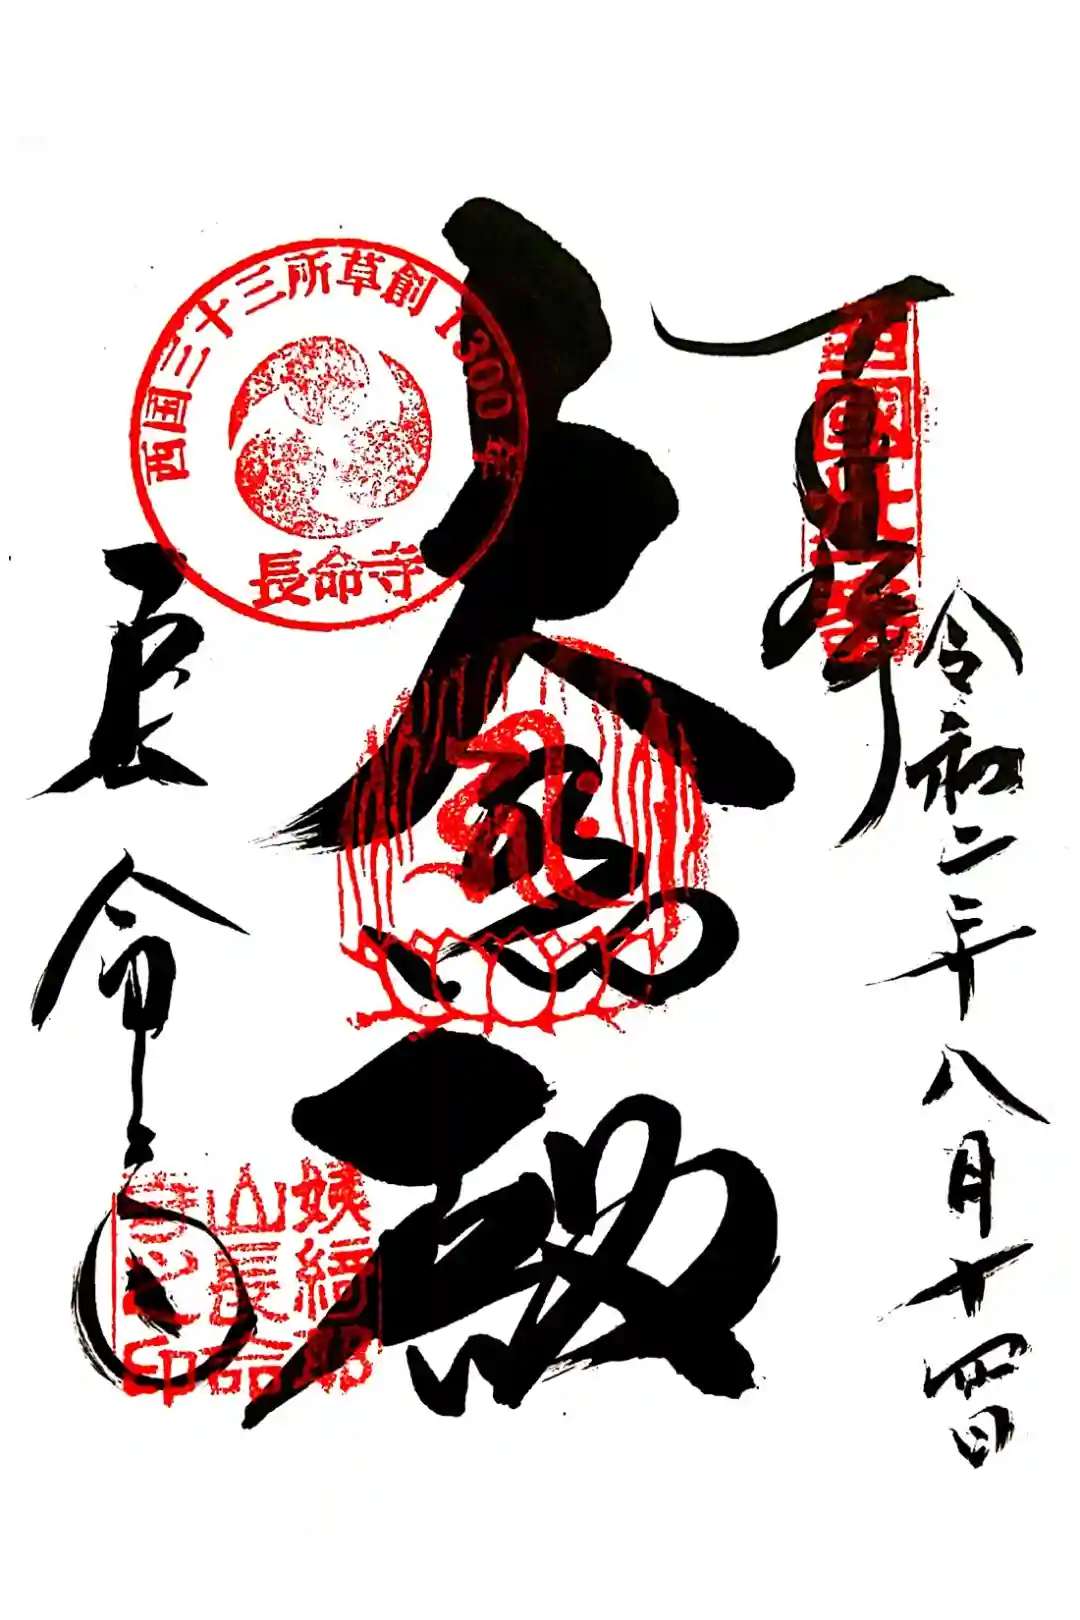 奉拝
西國三十一番
令和二年八月十四日
大悲殿
西国三十三所草創1300年
長命寺
長命寺
姨綺耶
山長命
寺之印